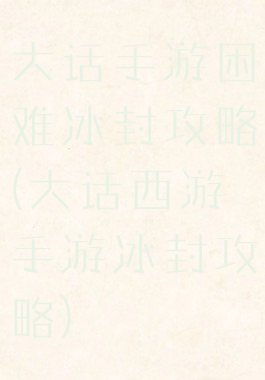 大话手游困
难冰封攻略
(大话西游
手游冰封攻
略)